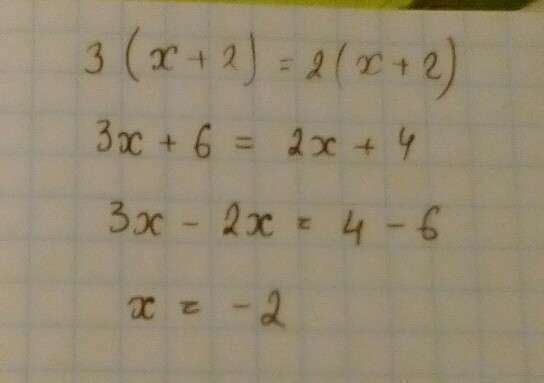 3 (x + 2) = 2(x + 2)
3x + 6 = 2x + 4
3x - 2x = 4 - 6
x = -2